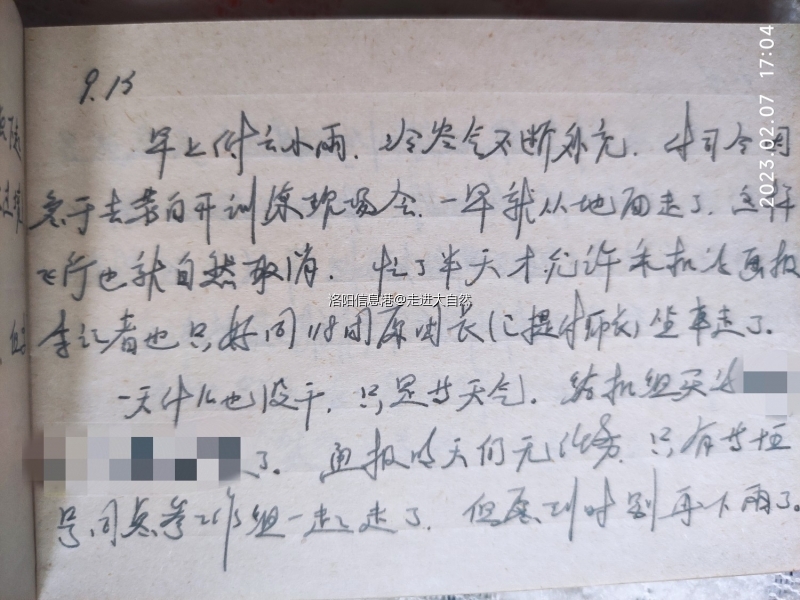 9.13
早上阴云小雨,冷空气不断补充,付司令因
急于去蒙自开训练现场会,一早就从地面走了,这样
飞行也就自然取消,忙了半天才允许乘机的画报
李记者也只好同118团原团长(已提付师长)坐车走了。
一天什么也没干,只是等天气。给机组买
了。通报明天仍无任务,只有等
号,同 工作组一起走了,但愿到时别再下雨了。
洛阳信息港@走进大自然
2023.02.07 17:04